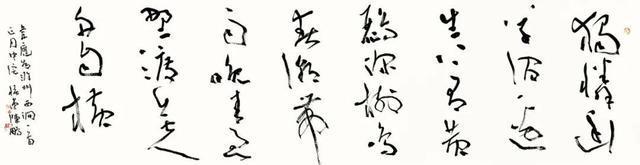 獨憐幽
草澗邊
生上有黄
鸝深樹鳴
春潮帶
雨晚来急
野渡無人
舟自横
韋應物滁州西澗一首
正月中浣